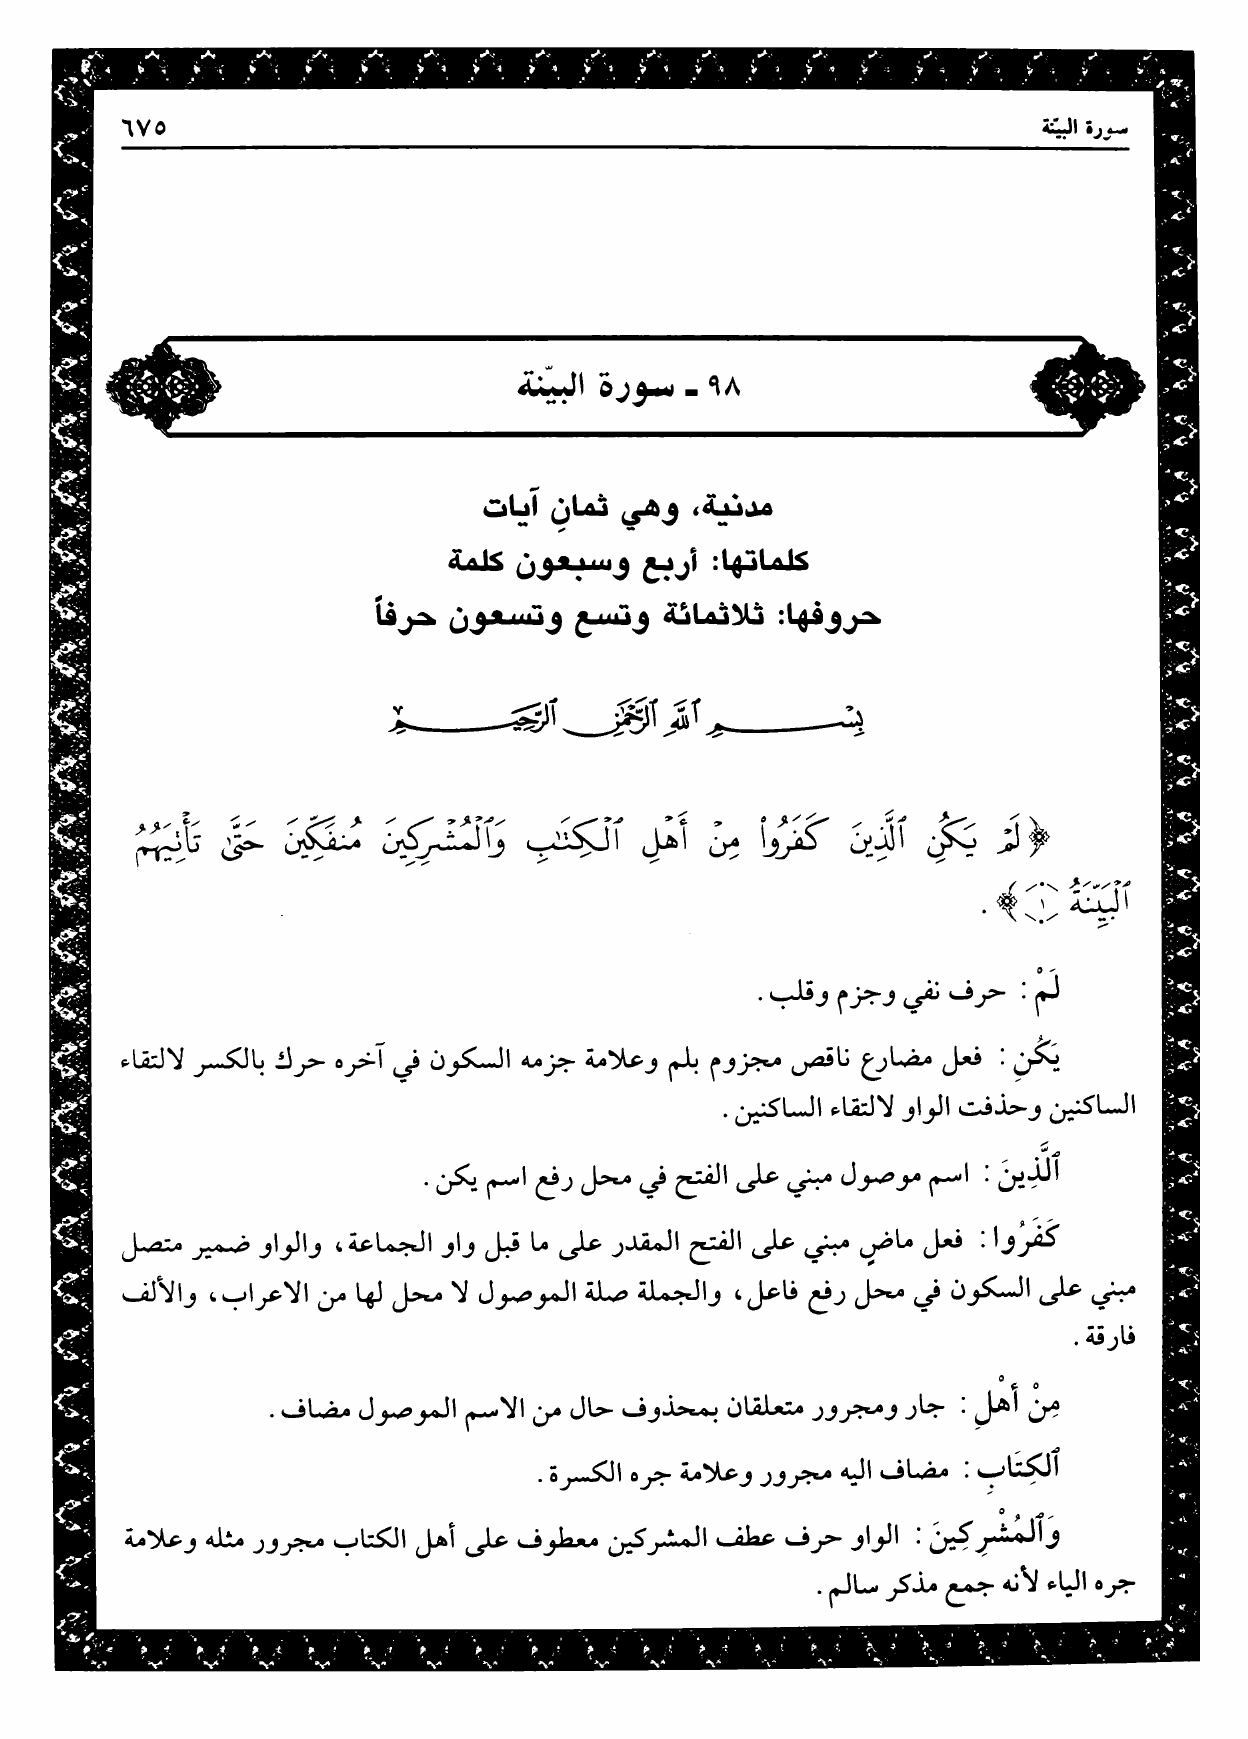 سورة البيّنة
٦٧٥
٩٨ ـ سورة البيّنة
مدنية، وهي ثمانِ آيات
كلماتها: أربع وسبعون كلمة
حروفها: ثلاثمائة وتسع وتسعون حرفاً
بِسْمِ ٱللَّهِ ٱلرَّحْمَٰنِ ٱلرَّحِيمِ
﴿لَمْ يَكُنِ ٱلَّذِينَ كَفَرُوا۟ مِنْ أَهْلِ ٱلْكِتَٰبِ وَٱلْمُشْرِكِينَ مُنفَكِّينَ حَتَّىٰ تَأْتِيَهُمُ
ٱلْبَيِّنَةُ ١﴾ .
لَمْ : حرف نفي وجزم وقلب .
يَكُنِ : فعل مضارع ناقص مجزوم بلم وعلامة جزمه السكون في آخره حرك بالكسر لالتقاء
الساكنين وحذفت الواو لالتقاء الساكنين .
ٱلَّذِينَ : اسم موصول مبني على الفتح في محل رفع اسم يكن .
كَفَرُوا : فعل ماضٍ مبني على الفتح المقدر على ما قبل واو الجماعة، والواو ضمير متصل
مبني على السكون في محل رفع فاعل، والجملة صلة الموصول لا محل لها من الاعراب، والألف
فارقة .
مِنْ أَهْلِ : جار ومجرور متعلقان بمحذوف حال من الاسم الموصول مضاف .
ٱلكِتَابِ : مضاف اليه مجرور وعلامة جره الكسرة .
وَٱلمُشْرِكِينَ : الواو حرف عطف المشركين معطوف على أهل الكتاب مجرور مثله وعلامة
جره الياء لأنه جمع مذكر سالم .